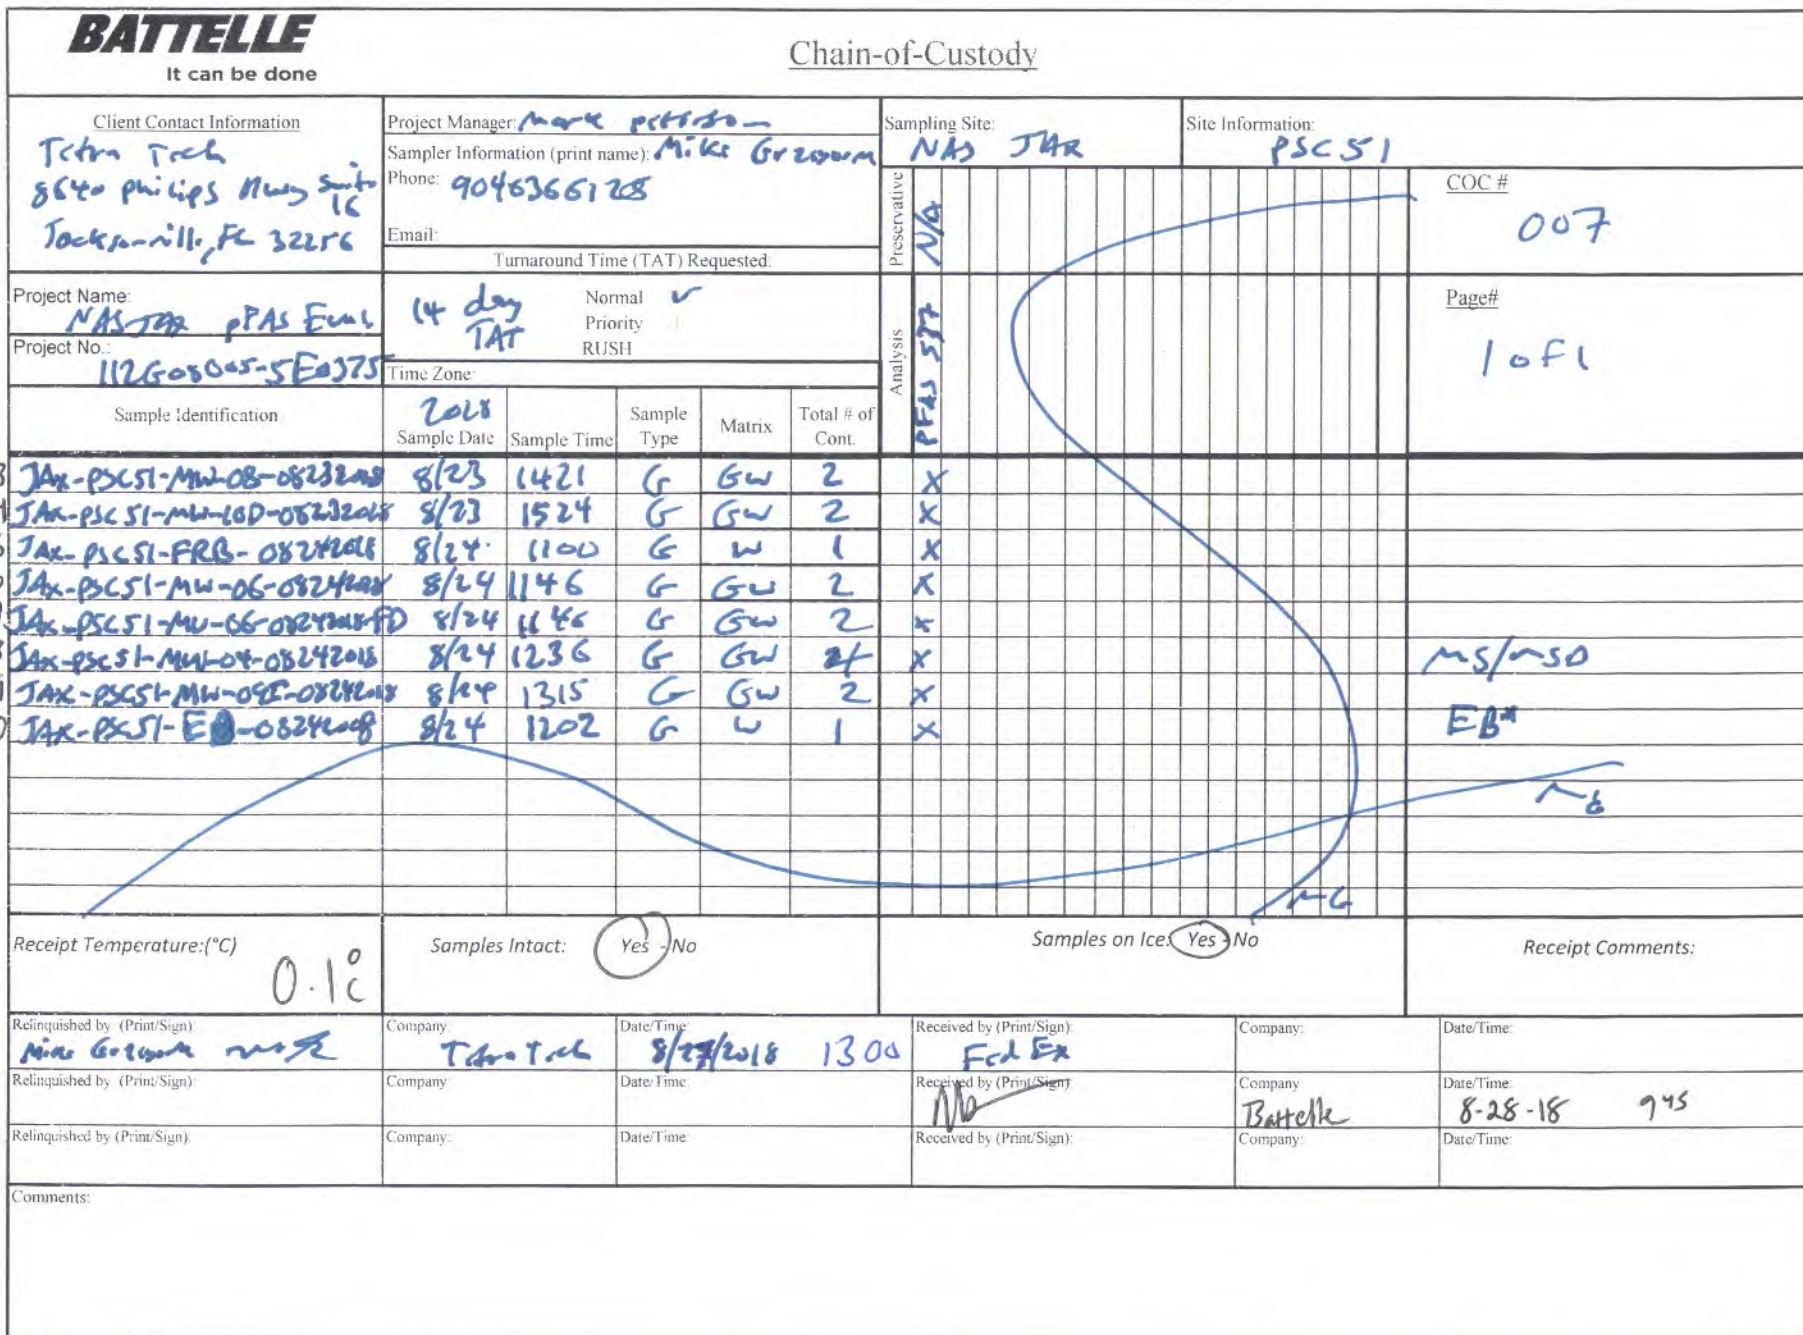 BATTELLE
It can be done
Chain-of-Custody
Client Contact Information
Tetra Tech
8640 Philips Hwy Suite
16
Jacksonville, FL 32256
Project Manager: Mark
Sampler Information (print name): Mike
Phone: 9046366125
Email:
Turnaround Time (TAT) Requested:
Sampling Site:
NAS JAX
Site Information:
PSC 51
Preservative
N/A
COC #
007
Project Name:
NAS JAX PFAS Eval
Project No.:
112G08005-5E0375
14 day
TAT
Normal ✓
Priority
RUSH
Time Zone:
Analysis
PFAS 537
Page#
1 of 1
Sample Identification
2018
Sample Date
Sample Time
Sample Type
Matrix
Total # of Cont.
JAX-PSC51-MW-08-08232018 8/23 1421 G GW 2 X
JAX-PSC51-MW-10D-08232018 8/23 1524 G GW 2 X
JAX-PSC51-FRB-08242018 8/24 1100 G W 1 X
JAX-PSC51-MW-06-08242018 8/24 1146 G GW 2 X
JAX-PSC51-MW-06-08242018-FD 8/24 1146 G GW 2 X
JAX-PSC51-MW-04-08242018 8/24 1236 G GW 4 X MS/MSD
JAX-PSC51-MW-09I-08242018 8/24 1315 G GW 2 X
JAX-PSC51-EB-08242018 8/24 1202 G W 1 X EB*
MG
MG
Receipt Temperature:(°C)
0.1°C
Samples Intact: Yes - No
Samples on Ice: Yes - No
Receipt Comments:
Relinquished by (Print/Sign):
Mike
Company:
Tetra Tech
Date/Time:
8/27/2018 1300
Received by (Print/Sign):
Fed Ex
Company:
Date/Time:
Relinquished by (Print/Sign):
Company:
Date/Time:
Received by (Print/Sign)
Company
Battelle
Date/Time:
8-28-18 945
Relinquished by (Print/Sign):
Company:
Date/Time:
Received by (Print/Sign):
Company:
Date/Time:
Comments: